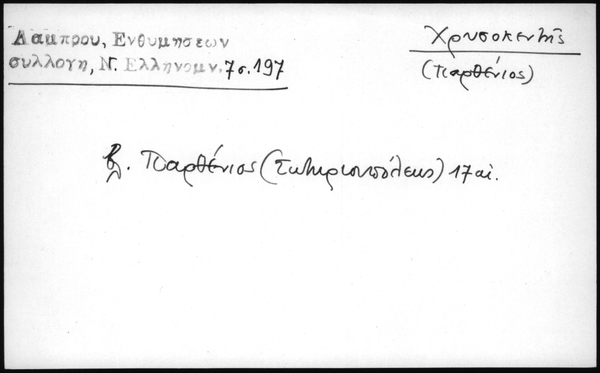 Λαμπρου, Ενθυμησεων
συλλογη, Ν. Ελληνομν. 7 σ. 197
Χρυσοκεντής
(Παρθένιος)
βλ. Παρθένιος (Σωτηριουπόλεως) 17 αἰ.